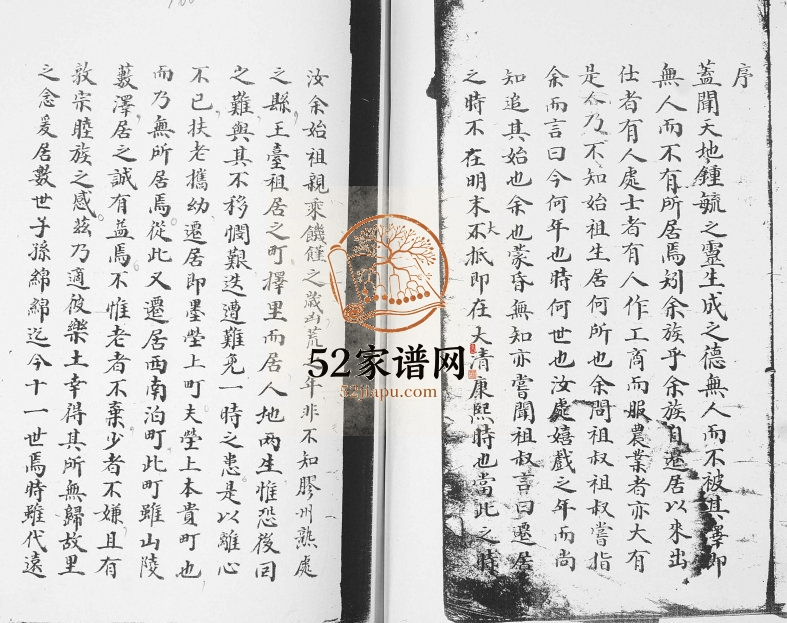 序
蓋聞天地鍾毓之靈生成之德無人而不被其澤即
無人而不有所居焉矧余族乎余族自遷居以來出
仕者有人處士者有人作工商而服農業者亦大有
是人乃不知始祖生居何所也余問祖叔祖叔嘗指
余而言曰今何年也時何世也汝處嬉戲之年而尚
知追其始也余也蒙昏無知亦嘗聞祖叔言曰遷居
之時不在明末大不抵即在大清康熙時也當此之時
汝余始祖親乘饑饉之歲凶荒年非不知膠州熟處
之縣王臺祖居之町擇里而居人地两生惟恐後回
之難與其不移憫艱迭遭難免一時之患是以離心
不已扶老攜幼遷居即墨瑩上町夫瑩上本貴町也
而乃無所居焉從此又遷居西南泊町此町雖山陵
藪澤居之誠有益焉不惟老者不棄少者不嫌且有
敦宗睦族之感茲乃適彼樂土幸得其所無歸故里
之念爰居數世子孫綿綿迄今十一世焉時雖代遠
52家谱网
52jiapu.com